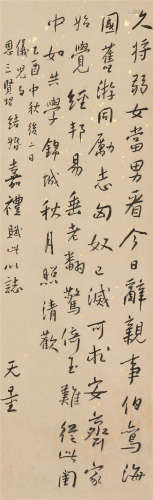 久将弱女當男看今日辭親事伯鸞海
國舊游同勵志匈奴已滅可求安齊家
始覺經邦易垂老翻驚倚玉難從此閨
中如共學錦城秋月照清歡
乙酉中秋後二日
儀兒與
三賢壻結婚嘉禮賦此以誌
天